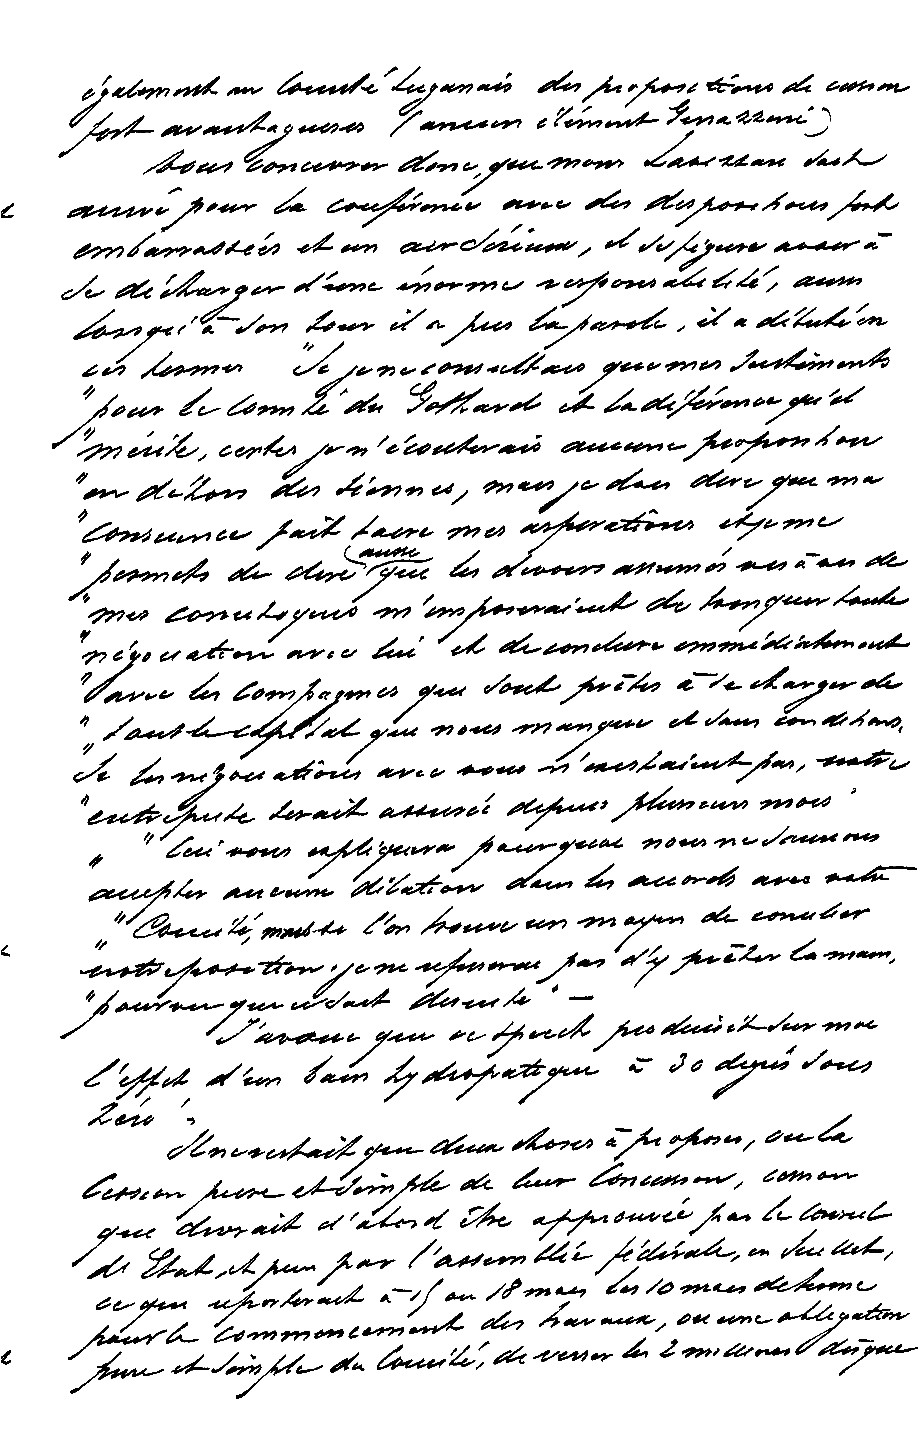 également au Comité Luganais des propositions de cession
fort avantageuses (ancien élément Genazzini)
Vous concevrez donc, que mons Lavizzari soit
arrivé pour la conférence avec des dispositions fort
embarrassées et un air sérieux, il se figure avoir à
se décharger d'une énorme responsabilité, aussi
lorsqu'à son tour il a pris la parole, il a débuté en
ces termes "Si je ne consultais que mes sentiments
"pour le Comité du Gothard et la déférence qu'il
"mérite, certes je n'écouterais aucune proposition
"en dehors des siennes, mais je dois dire que ma
"conscience fait taire mes aspirations et je me
"permets de dire aussi que les devoirs assumés vis à vis de
"mes concitoyens m'imposeraient de tronquer toute
"négociation avec lui et de conclure immédiatement
"avec les Compagnies qui sont prêtes à se charger de
"tout le capital qui nous manque et sans conditions.
Si les négociations avec vous n'existaient pas, notre
"entreprise serait assurée depuis plusieurs mois"
" "Lui vous expliquera pourquoi nous ne saurions
accepter aucune dilation dans les accords avec votre
" "Comité, mais si l'on trouve un moyen de concilier
notre position, je ne refuserai pas d'y prêter la main,
"pourvu que ce soit de suite" —
J'avoue que ce speech produisit sur moi
l'effet d'un bain hydropatique à 30 degrés sous
Zéro!
Il ne restait que deux choses à proposer, ou la
Cession pure et simple de leur Concession, cession
qui devrait d'abord être approuvée par le Conseil
d'Etat, et puis par l'assemblée fédérale, en Juillet,
ce qui reporterait à 15 ou 18 mois les 10 mois de terme
pour le commencement des travaux, ou une obligation
pure et simple du Comité, de verser les 2 millions dès que